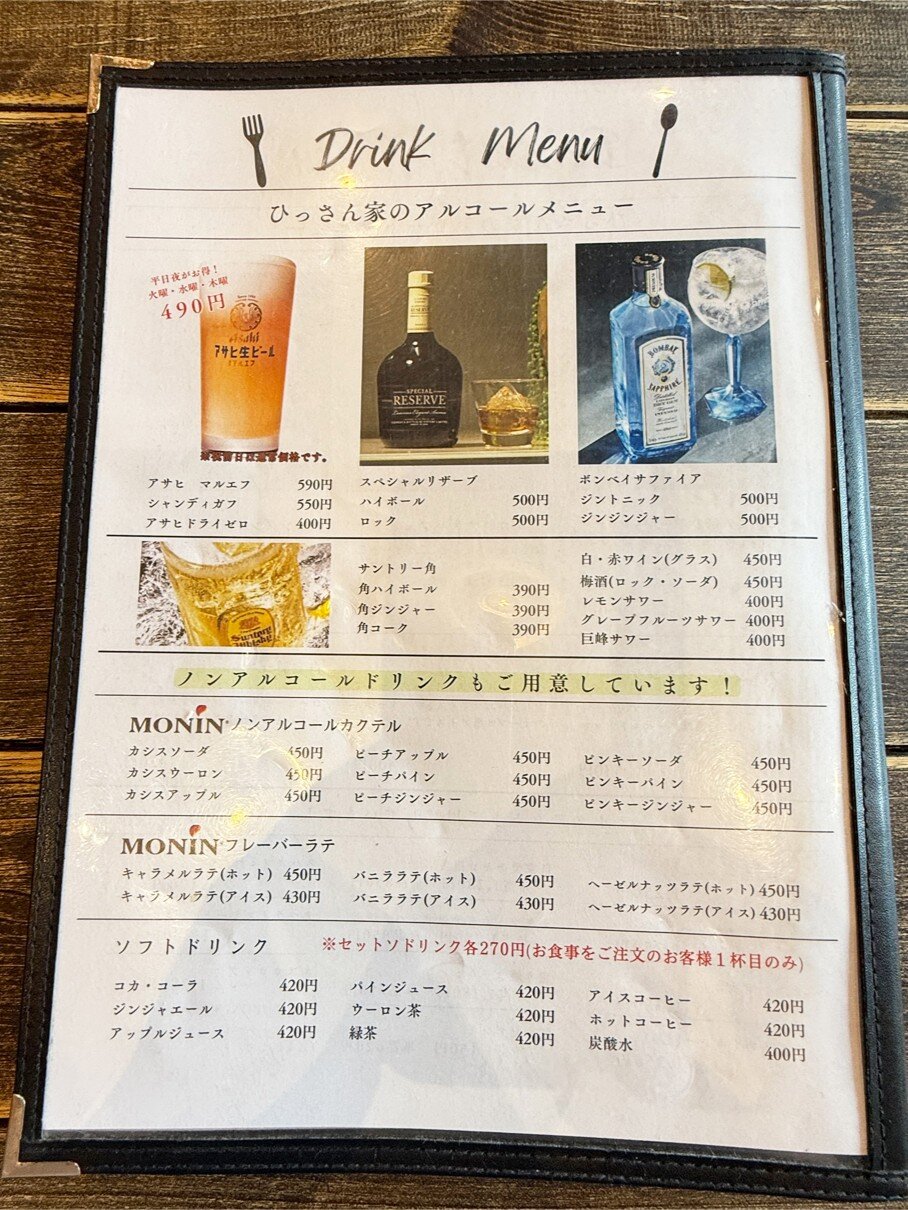 Drink Menu
ひっさん家のアルコールメニュー
平日夜がお得!
火曜・水曜・木曜
490円
Asahi
アサヒ生ビール
マルエフ
※祝前日は通常価格です。
アサヒ マルエフ 590円
シャンディガフ 550円
アサヒドライゼロ 400円
RESERVE
SPECIAL
RESERVE
スペシャルリザーブ
ハイボール 500円
ロック 500円
BOMBAY
SAPPHIRE
ボンベイサファイア
ジントニック 500円
ジンジンジャー 500円
Suntory
Whisky
サントリー角
角ハイボール 390円
角ジンジャー 390円
角コーク 390円
白・赤ワイン(グラス) 450円
梅酒(ロック・ソーダ) 450円
レモンサワー 400円
グレープフルーツサワー 400円
巨峰サワー 400円
ノンアルコールドリンクもご用意しています!
MONIN ノンアルコールカクテル
カシスソーダ 450円
カシスウーロン 450円
カシスアップル 450円
ピーチアップル 450円
ピーチパイン 450円
ピーチジンジャー 450円
ピンキーソーダ 450円
ピンキーパイン 450円
ピンキージンジャー 450円
MONIN フレーバーラテ
キャラメルラテ(ホット) 450円
キャラメルラテ(アイス) 430円
バニララテ(ホット) 450円
バニララテ(アイス) 430円
ヘーゼルナッツラテ(ホット) 450円
ヘーゼルナッツラテ(アイス) 430円
ソフトドリンク ※セットソドリンク各270円(お食事をご注文のお客様1杯目のみ)
コカ・コーラ 420円
ジンジャエール 420円
アップルジュース 420円
パインジュース 420円
ウーロン茶 420円
緑茶 420円
アイスコーヒー 420円
ホットコーヒー 420円
炭酸水 400円